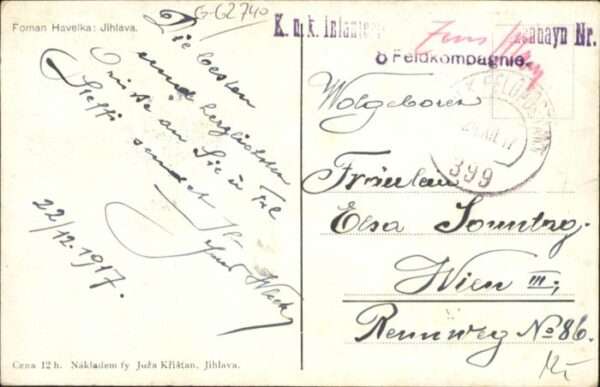 G-G2740
Foman Havelka: Jihlava.
Die besten
und herzlichsten
Grüsse an Sie u. Frl
Steffi sendet
22/12.1917.
K. u. k. Infanterie
Nr.
8 Feldkompagnie.
K. u. K. FELDPOSTAMT
XII. 17
399
Wolgeboren
Fräulein
Elsa Sonntag.
Wien III;
Rennweg No 86.
Cena 12 h. Nákladem fy Juža Křišťan, Jihlava.